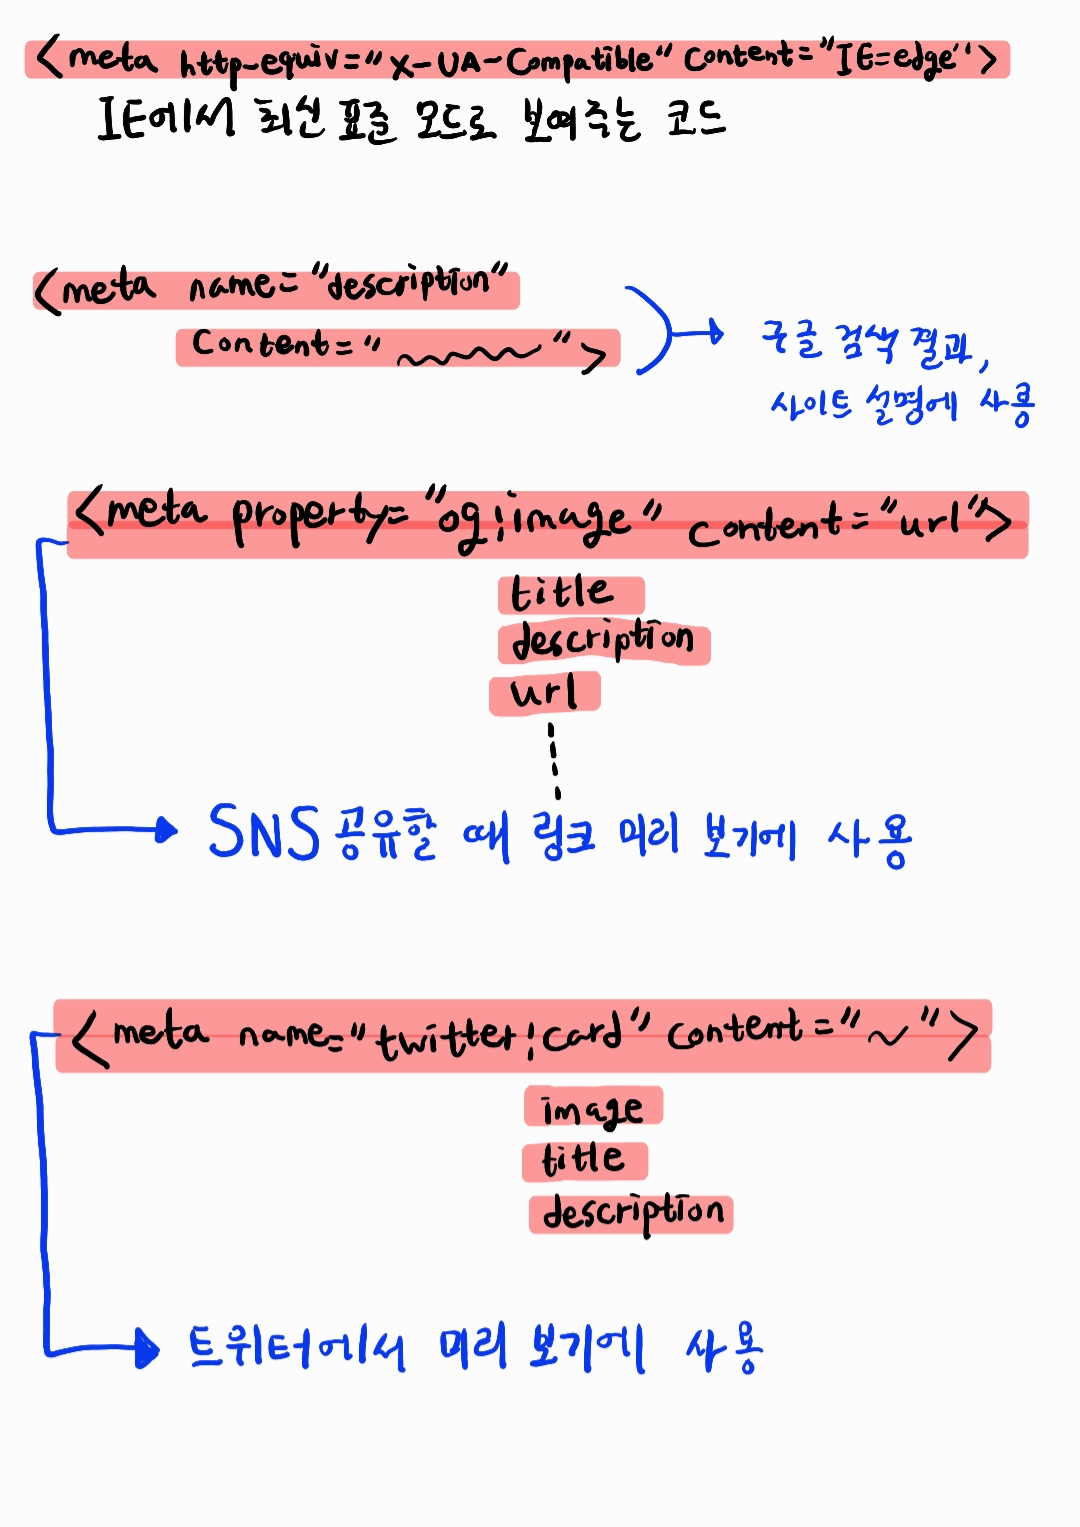 <meta http-equiv="X-UA-Compatible" content="IE=edge">
IE에서 최신 표준 모드로 보여주는 코드
<meta name="description"
content="~~~~~~">
구글 검색 결과,
사이트 설명에 사용
<meta property="og:image" content="url">
title
description
url
SNS 공유할 때 링크 미리 보기에 사용
<meta name="twitter:card" content="~">
image
title
description
트위터에서 미리 보기에 사용